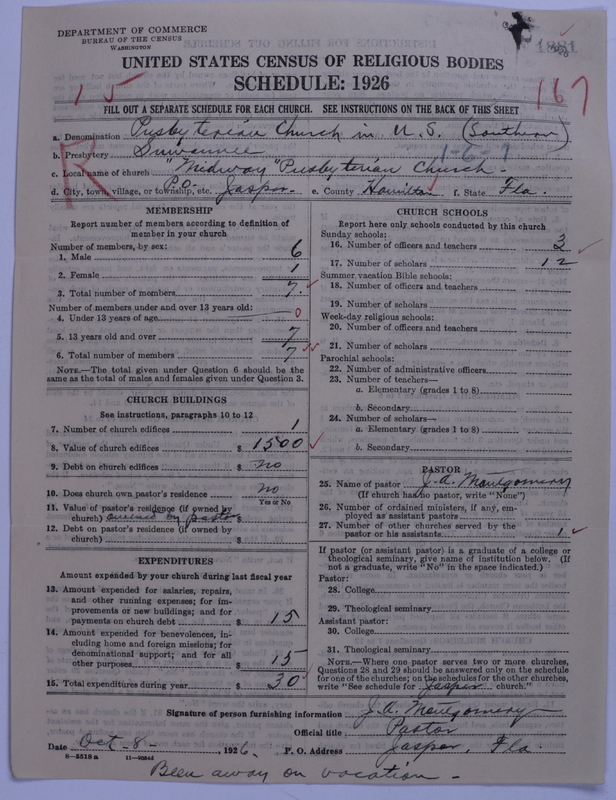 DEPARTMENT OF COMMERCE
BUREAU OF THE CENSUS
WASHINGTON
UNITED STATES CENSUS OF RELIGIOUS BODIES
SCHEDULE: 1926
1 5
167
FILL OUT A SEPARATE SCHEDULE FOR EACH CHURCH. SEE INSTRUCTIONS ON THE BACK OF THIS SHEET
R
a. Denomination Presbyterian Church in U.S. (Southern)
b. Presbytery Suwannee 1-6-7
c. Local name of church "Midway" Presbyterian Church -
d. City, town, village, or township, etc. P.O. Jasper e. County Hamilton f. State Fla.
MEMBERSHIP
Report number of members according to definition of
member in your church
Number of members, by sex:
1. Male 6
2. Female 1
3. Total number of members 7.
Number of members under and over 13 years old:
4. Under 13 years of age 0
5. 13 years old and over 7
6. Total number of members 7
NOTE.—The total given under Question 6 should be
same as the total of males and females given under Question 3.
CHURCH BUILDINGS
See instructions, paragraphs 10 to 12
7. Number of church edifices 1
8. Value of church edifices $ 1500
9. Debt on church edifices $ no
10. Does church own pastor's residence no
Yes or No
11. Value of pastor's residence (if owned by
church) owned by pastor $
12. Debt on pastor's residence (if owned by
church) $
EXPENDITURES
Amount expended by your church during last fiscal year
13. Amount expended for salaries, repairs,
and other running expenses; for im-
provements or new buildings; and for
payments on church debt $ 15
14. Amount expended for benevolences, in-
cluding home and foreign missions; for
denominational support; and for all
other purposes $ 15
15. Total expenditures during year $ 30
CHURCH SCHOOLS
Report here only schools conducted by this church
Sunday schools:
16. Number of officers and teachers 3
17. Number of scholars 12
Summer vacation Bible schools:
18. Number of officers and teachers
19. Number of scholars
Week-day religious schools:
20. Number of officers and teachers
21. Number of scholars
Parochial schools:
22. Number of administrative officers
23. Number of teachers—
a. Elementary (grades 1 to 8)
b. Secondary
24. Number of scholars—
a. Elementary (grades 1 to 8)
b. Secondary
PASTOR
25. Name of pastor J.A. Montgomery
(If church has no pastor, write "None")
26. Number of ordained ministers, if any, em-
ployed as assistant pastors
27. Number of other churches served by the
pastor or his assistants 1
If pastor (or assistant pastor) is a graduate of a college or
theological seminary, give name of institution below. (If
not a graduate, write "No" in the space indicated.)
Pastor:
28. College
29. Theological seminary
Assistant pastor:
30. College
31. Theological seminary
NOTE.—Where one pastor serves two or more churches,
Questions 28 and 29 should be answered only on the schedule
for one of the churches; on the schedules for the other churches,
write "See schedule for Jasper church."
Signature of person furnishing information J.A. Montgomery
Official title Pastor
Date Oct - 8 -, 1926. P. O. Address Jasper, Fla.
8—5518 a
Been away on vacation -